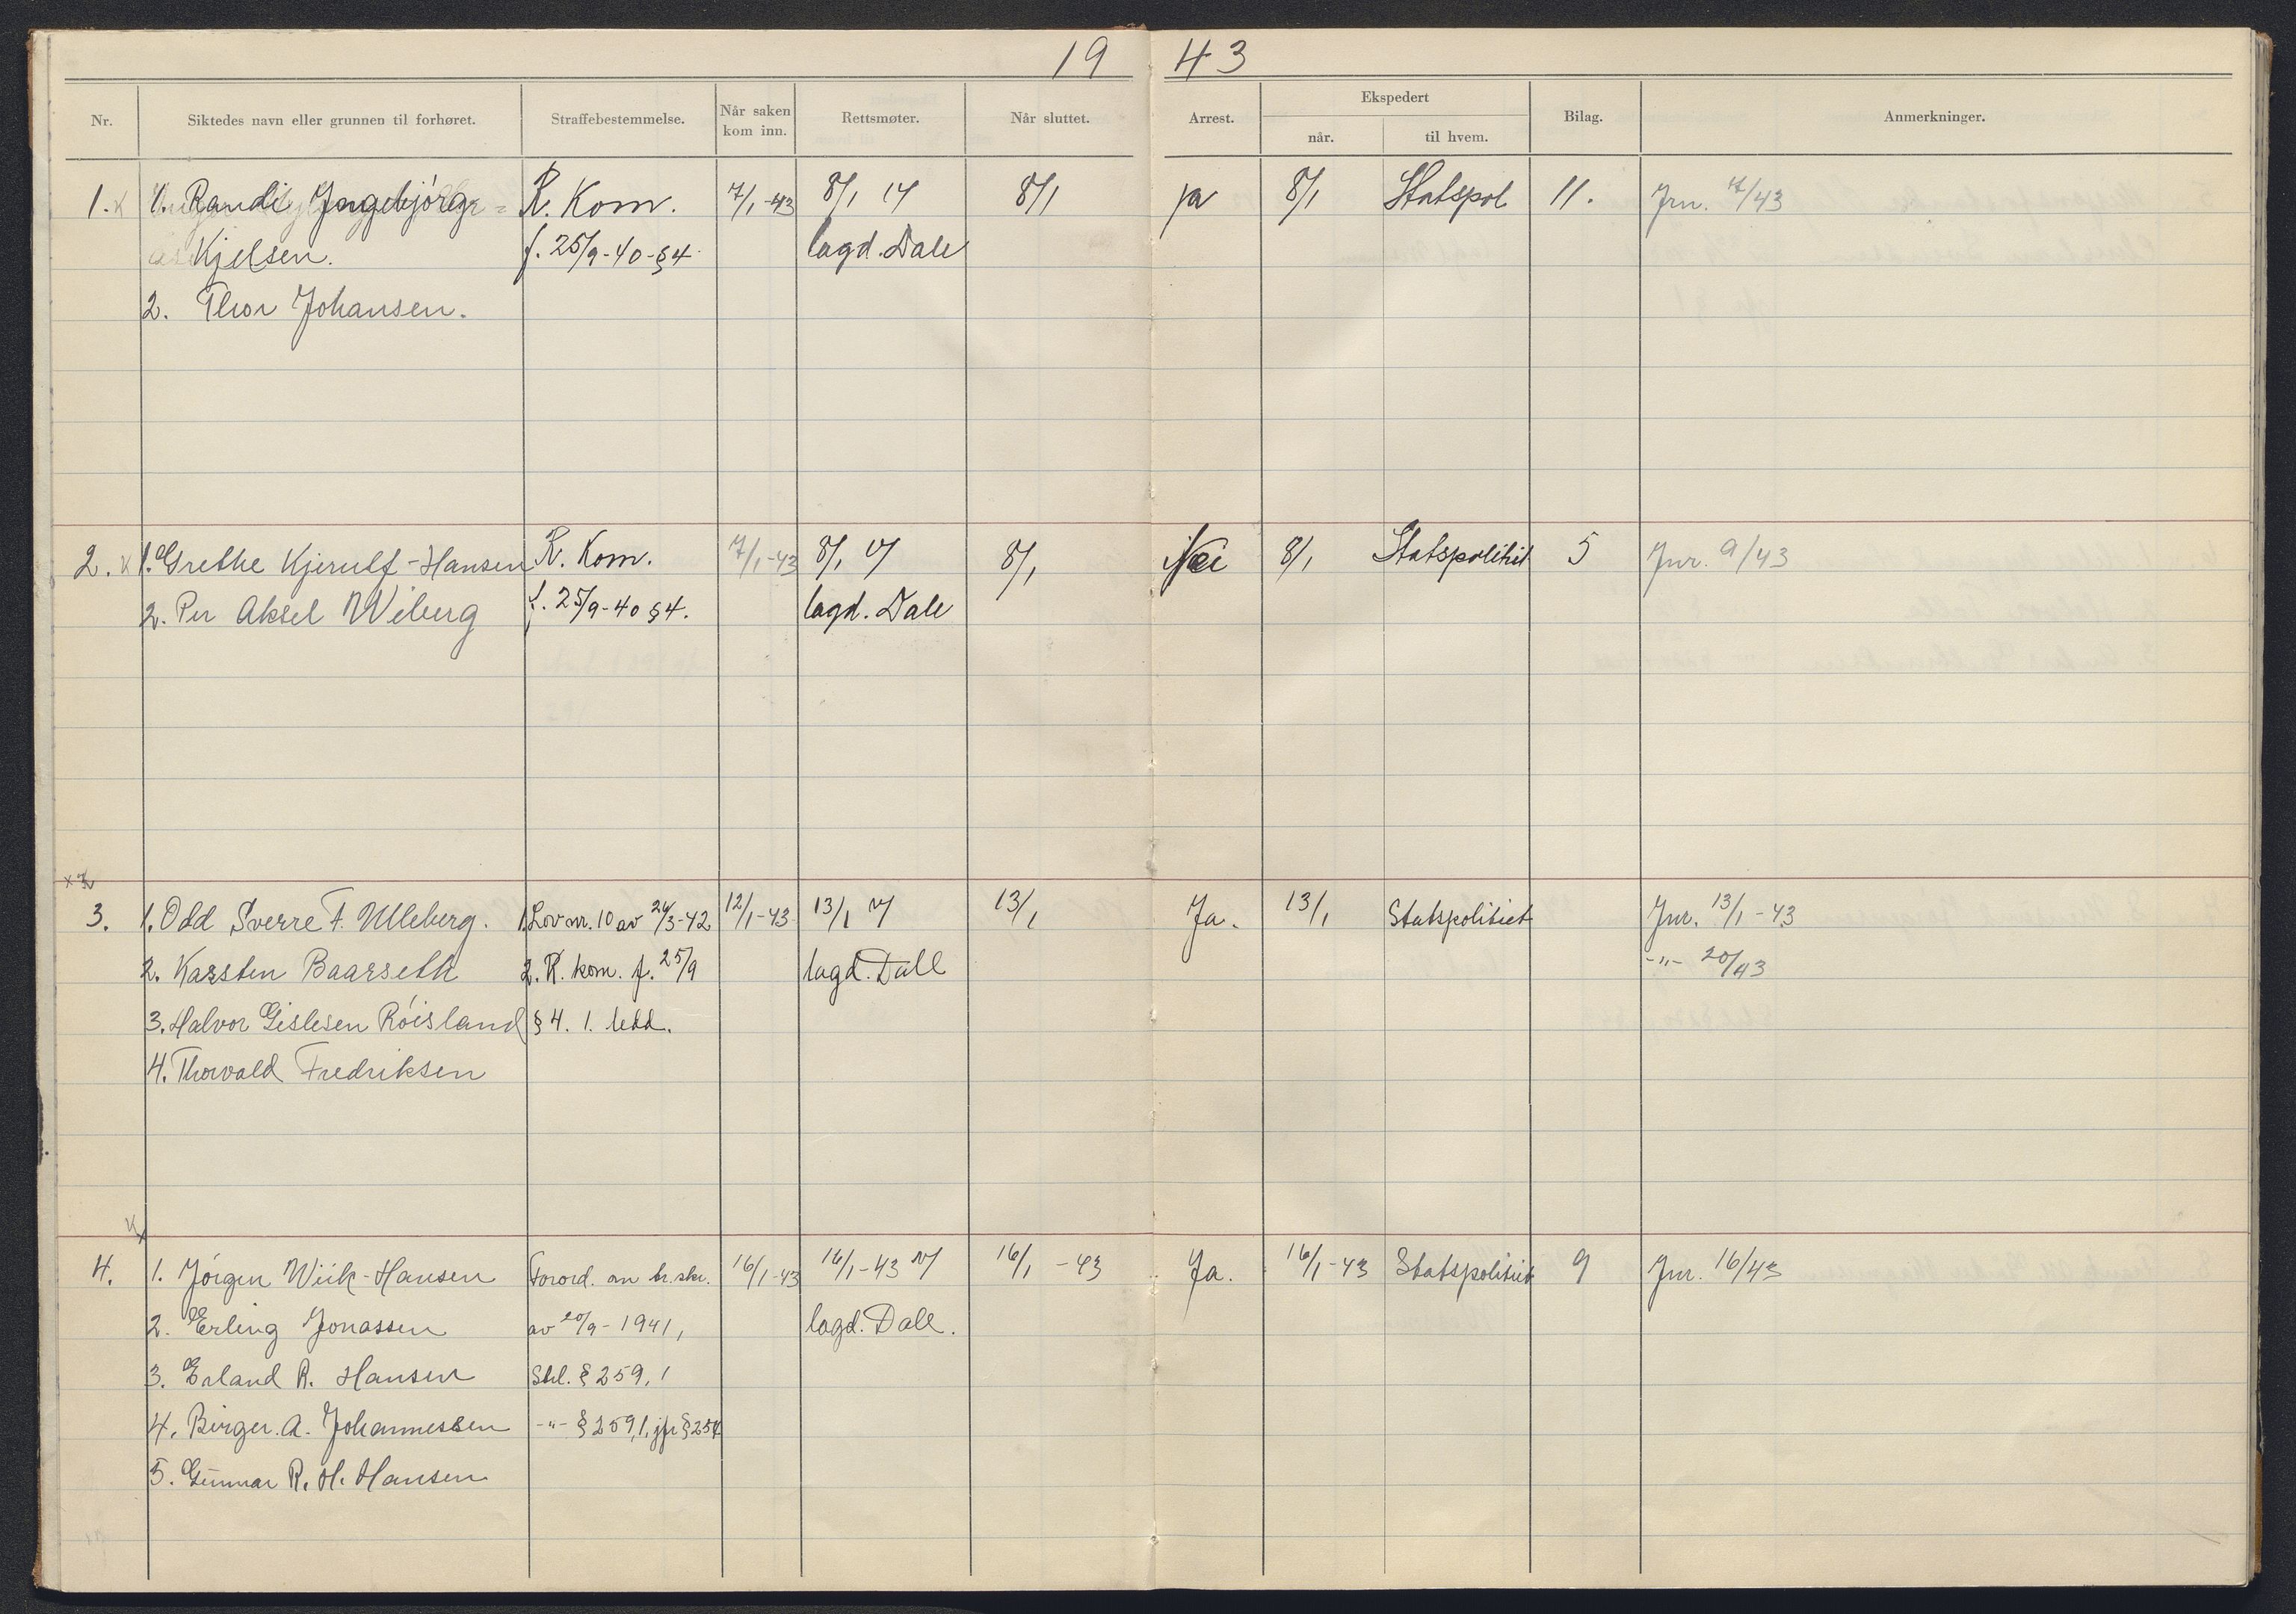 19 43
Nr. Siktedes navn eller grunnen til forhøret. Straffebestemmelse. Når saken kom inn. Rettsmøter. Når sluttet. Arrest. Ekspedert når. til hvem. Bilag. Anmerkninger.
1. 1. Randi Ingebjørg R. Kom. 7/1-43 8/1 8/1 ja 8/1 Statspol 11. Jnr. /43
Kjelsen. f. 25/9-40-§4. lagd. Dale
2. Thor Johansen.
2. 1. Grethe Kjerulf-Hansen R. Kom. 7/1-43 8/1 8/1 Nei 8/1 Statspolitiet 5 Jnr. 9/43
2. Per Aksel Wiberg f. 25/9-40 §4. lagd. Dale
3. 1. Odd Sverre F. Ulleberg. 1. Lov nr. 10 av 26/3-42 12/1-43 13/1 13/1 Ja. 13/1 Statspolitiet Jnr. 13/1-43
2. Karsten Baarseth 2. R. kom. f. 25/9 lagd. Dale -"- 20/43
3. Halvor Gislesen Røisland § 4. 1. ledd.
4. Thorvald Fredriksen
4. 1. Jørgen Wiik-Hansen Forord. om br.skr. 16/1-43 16/1-43 16/1-43 Ja. 16/1-43 Statspolitiet 9 Jnr. 16/43
2. Erling Jonassen av 20/9-1941, lagd. Dale.
3. Erland R. Hansen Strl. § 259, 1
4. Birger. A. Johannessen -"- § 259,1, jfr § 257
5. Gunnar R. H. Hansen